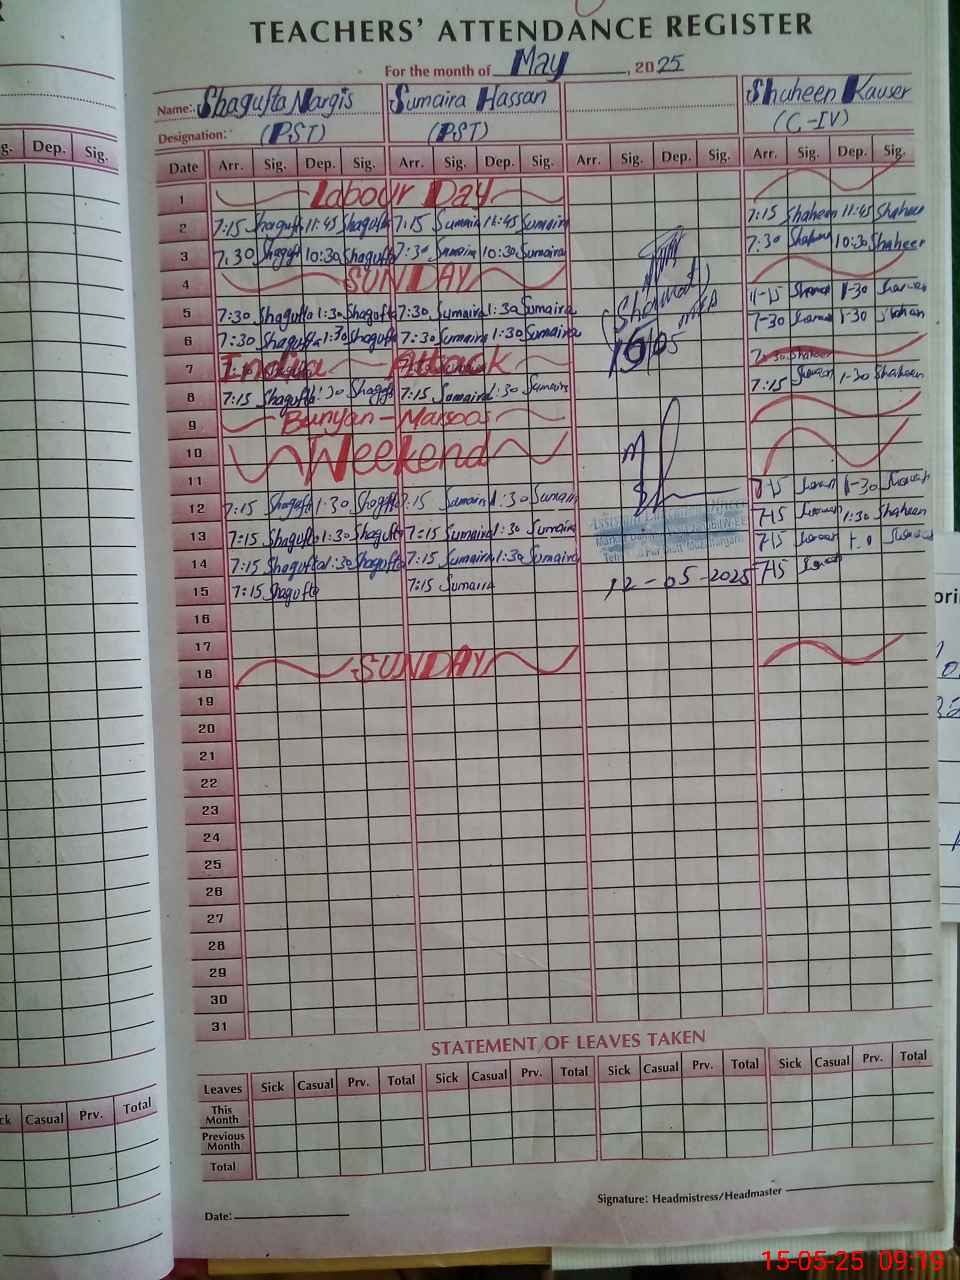 TEACHERS' ATTENDANCE REGISTER
For the month of May, 2025
Name: Shagufta Nargis Sumaira Hassan Shaheen Kauser
Designation: (PST) (PST) (C-IV)
g. Dep. Sig.
Date Arr. Sig. Dep. Sig. Arr. Sig. Dep. Sig. Arr. Sig. Dep. Sig. Arr. Sig. Dep. Sig.
1 Labour Day
2 7:15 Shagufta 11:45 Shagufta 7:15 Sumaira 11:45 Sumaira 7:15 Shaheen 11:45 Shaheen
3 7:30 Shagufta 10:30 Shagufta 7:30 Sumaira 10:30 Sumaira 7:30 Shaheen 10:30 Shaheen
4 SUNDAY
5 7:30 Shagufta 1:30 Shagufta 7:30 Sumaira 1:30 Sumaira 1-30
6 7:30 Shagufta 1:30 Shagufta 7:30 Sumaira 1:30 Sumaira 7-30 1-30
15/05
7 India Attack
8 7:15 Shagufta 1:30 Shagufta 7:15 Sumaira 1:30 Sumaira 7:15 1-30 Shaheen
9 Bunyan-Marsoos
10 Weekend
11
12 7:15 Shagufta 1:30 Shagufta 7:15 Sumaira 1:30 Sumaira 7-15 1-30
13 7:15 Shagufta 1:30 Shagufta 7:15 Sumaira 1:30 Sumaira 7-15 1:30 Shaheen
14 7:15 Shagufta 1:30 Shagufta 7:15 Sumaira 1:30 Sumaira 7-15
15 7:15 Shagufta 7:15 Sumaira 12-05-2025 7-15
16
17
18 SUNDAY
19
20
21
22
23
24
25
26
27
28
29
30
31
STATEMENT OF LEAVES TAKEN
Leaves Sick Casual Prv. Total Sick Casual Prv. Total Sick Casual Prv. Total Sick Casual Prv. Total
ck Casual Prv. Total
This Month
Previous Month
Total
Signature: Headmistress/Headmaster
Date:
15-05-25 09:19